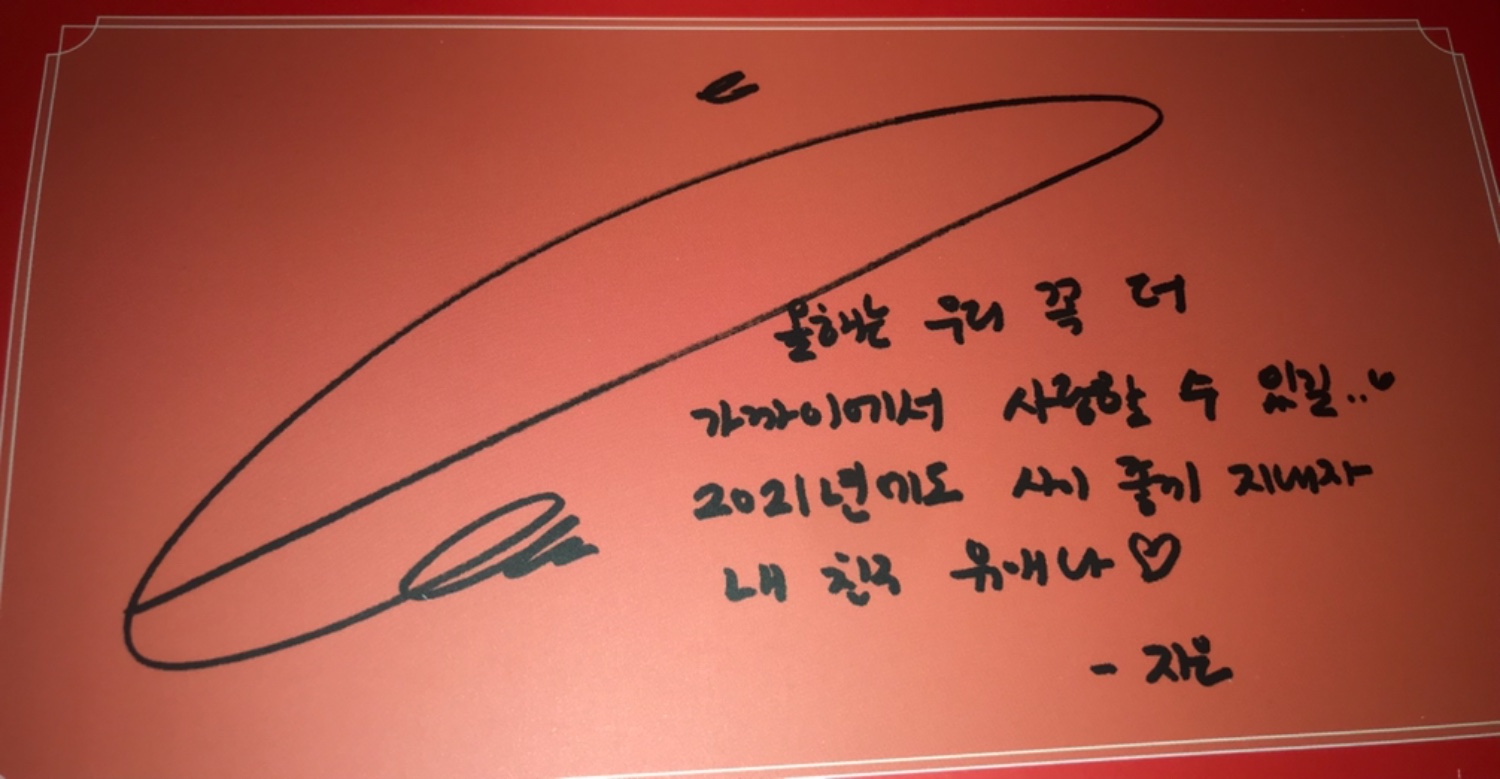 올해는 우리 꼭 더
가까이에서 사랑할 수 있길..
2021년에도 사이 좋게 지내자
내 친구 유애나♡
- 지은